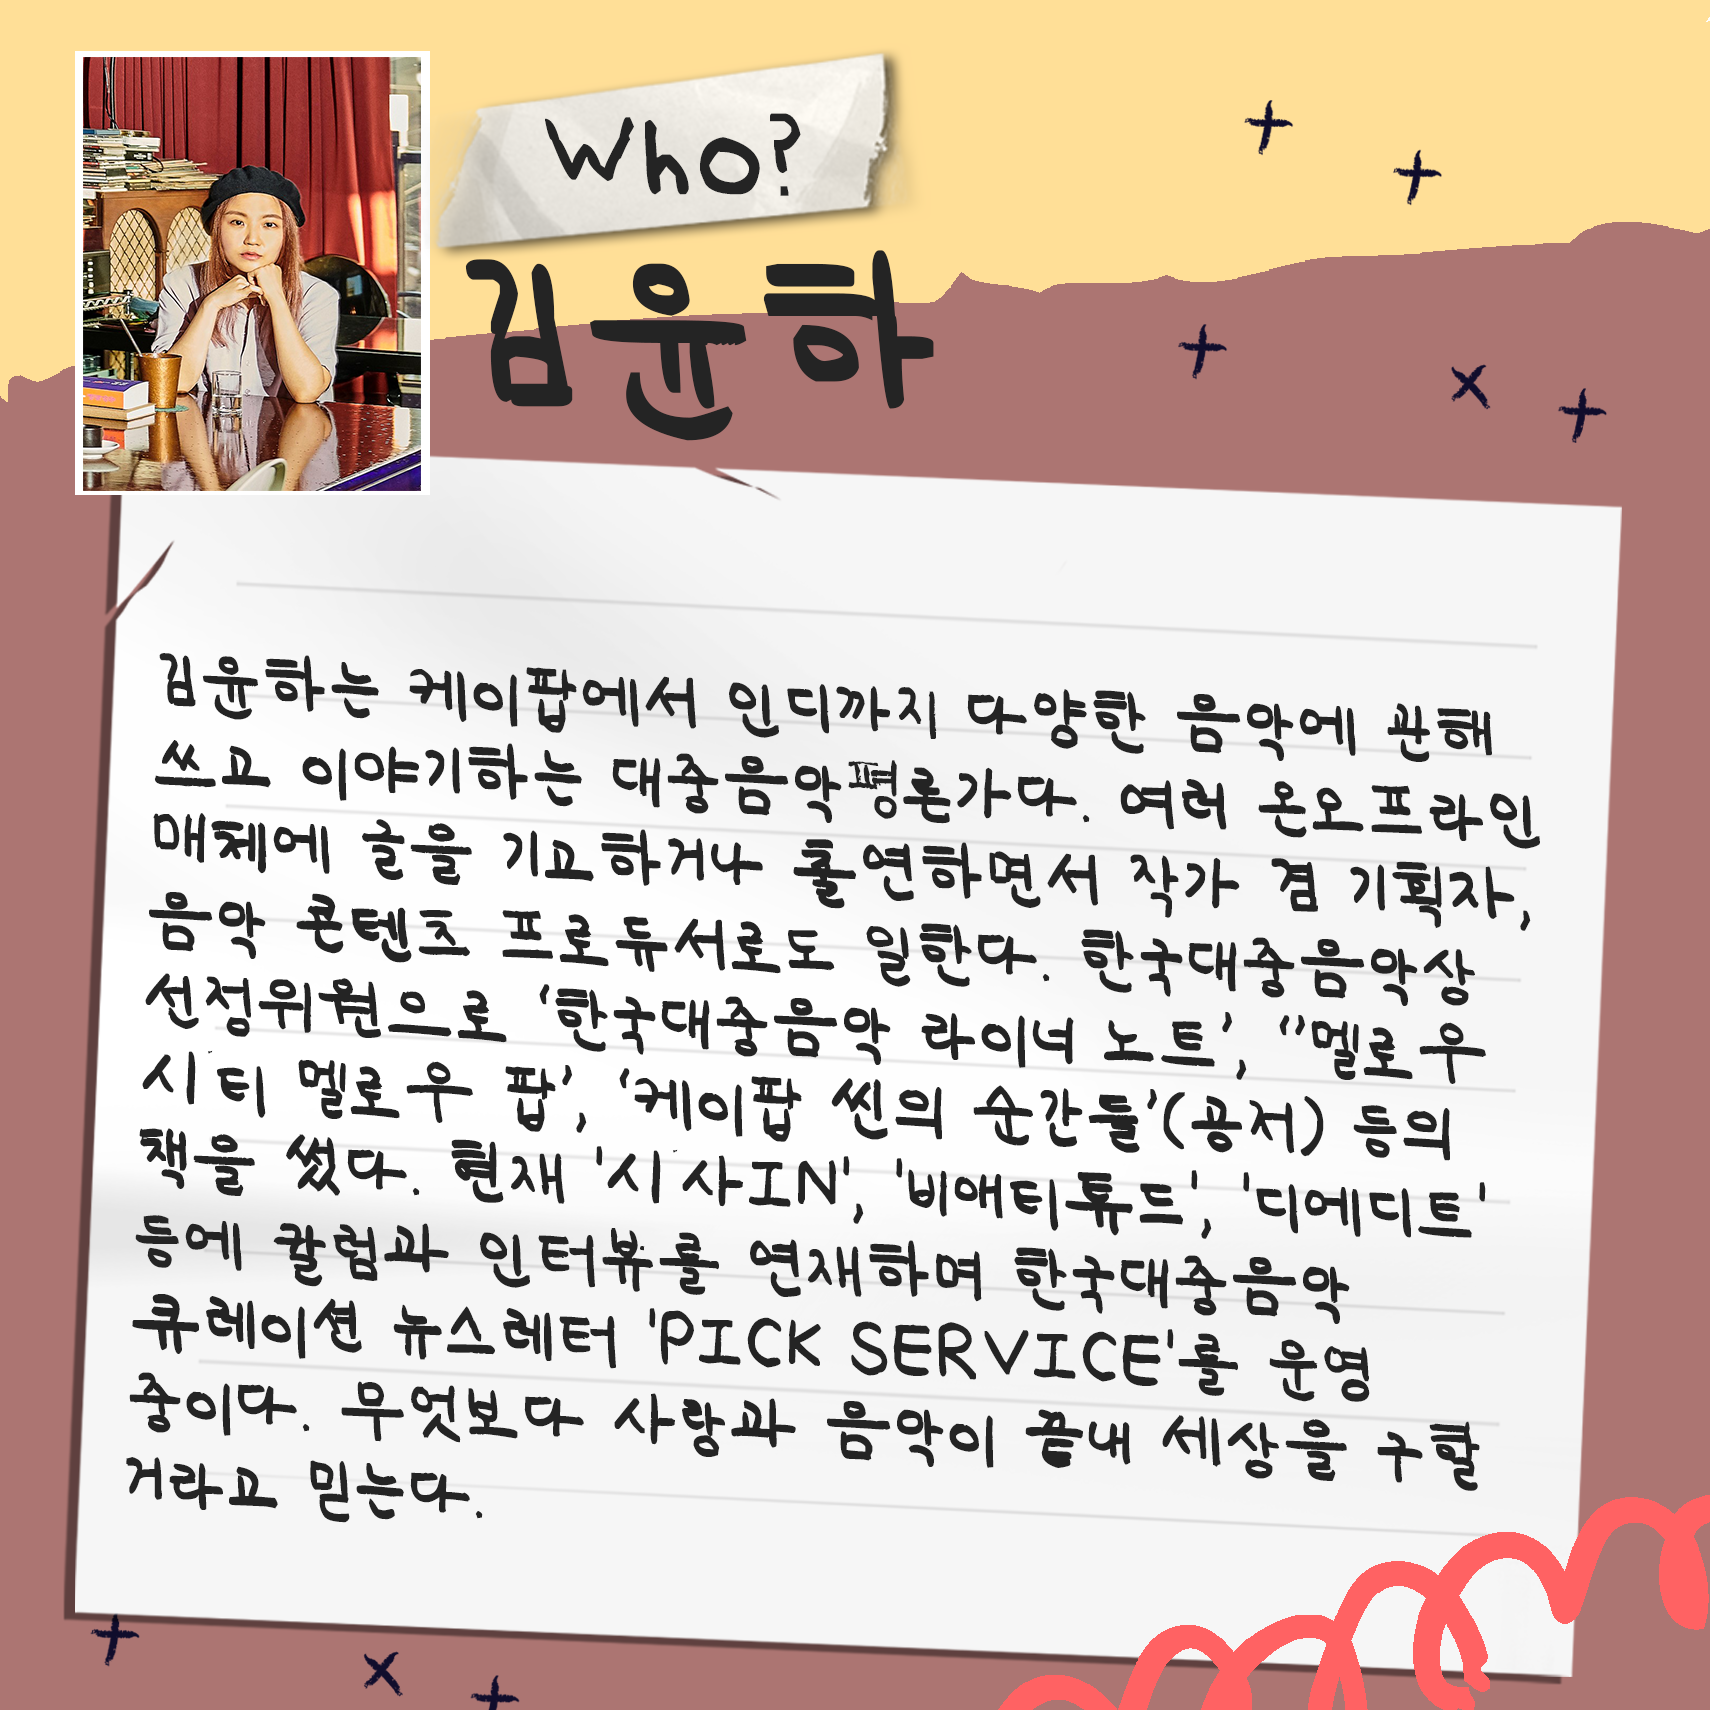 Who?
김윤하
김윤하는 케이팝에서 인디까지 다양한 음악에 관해
쓰고 이야기하는 대중음악평론가다. 여러 온오프라인
매체에 글을 기고하거나 출연하면서 작가 겸 기획자,
음악 콘텐츠 프로듀서로도 일한다. 한국대중음악상
선정위원으로 '한국대중음악 라이너 노트', ''멜로우
시티 멜로우 팝', '케이팝 씬의 순간들'(공저) 등의
책을 썼다. 현재 '시사IN', '비애티튜드', '디에디트'
등에 칼럼과 인터뷰를 연재하며 한국대중음악
큐레이션 뉴스레터 'PICK SERVICE'를 운영
중이다. 무엇보다 사랑과 음악이 끝내 세상을 구할
거라고 믿는다.